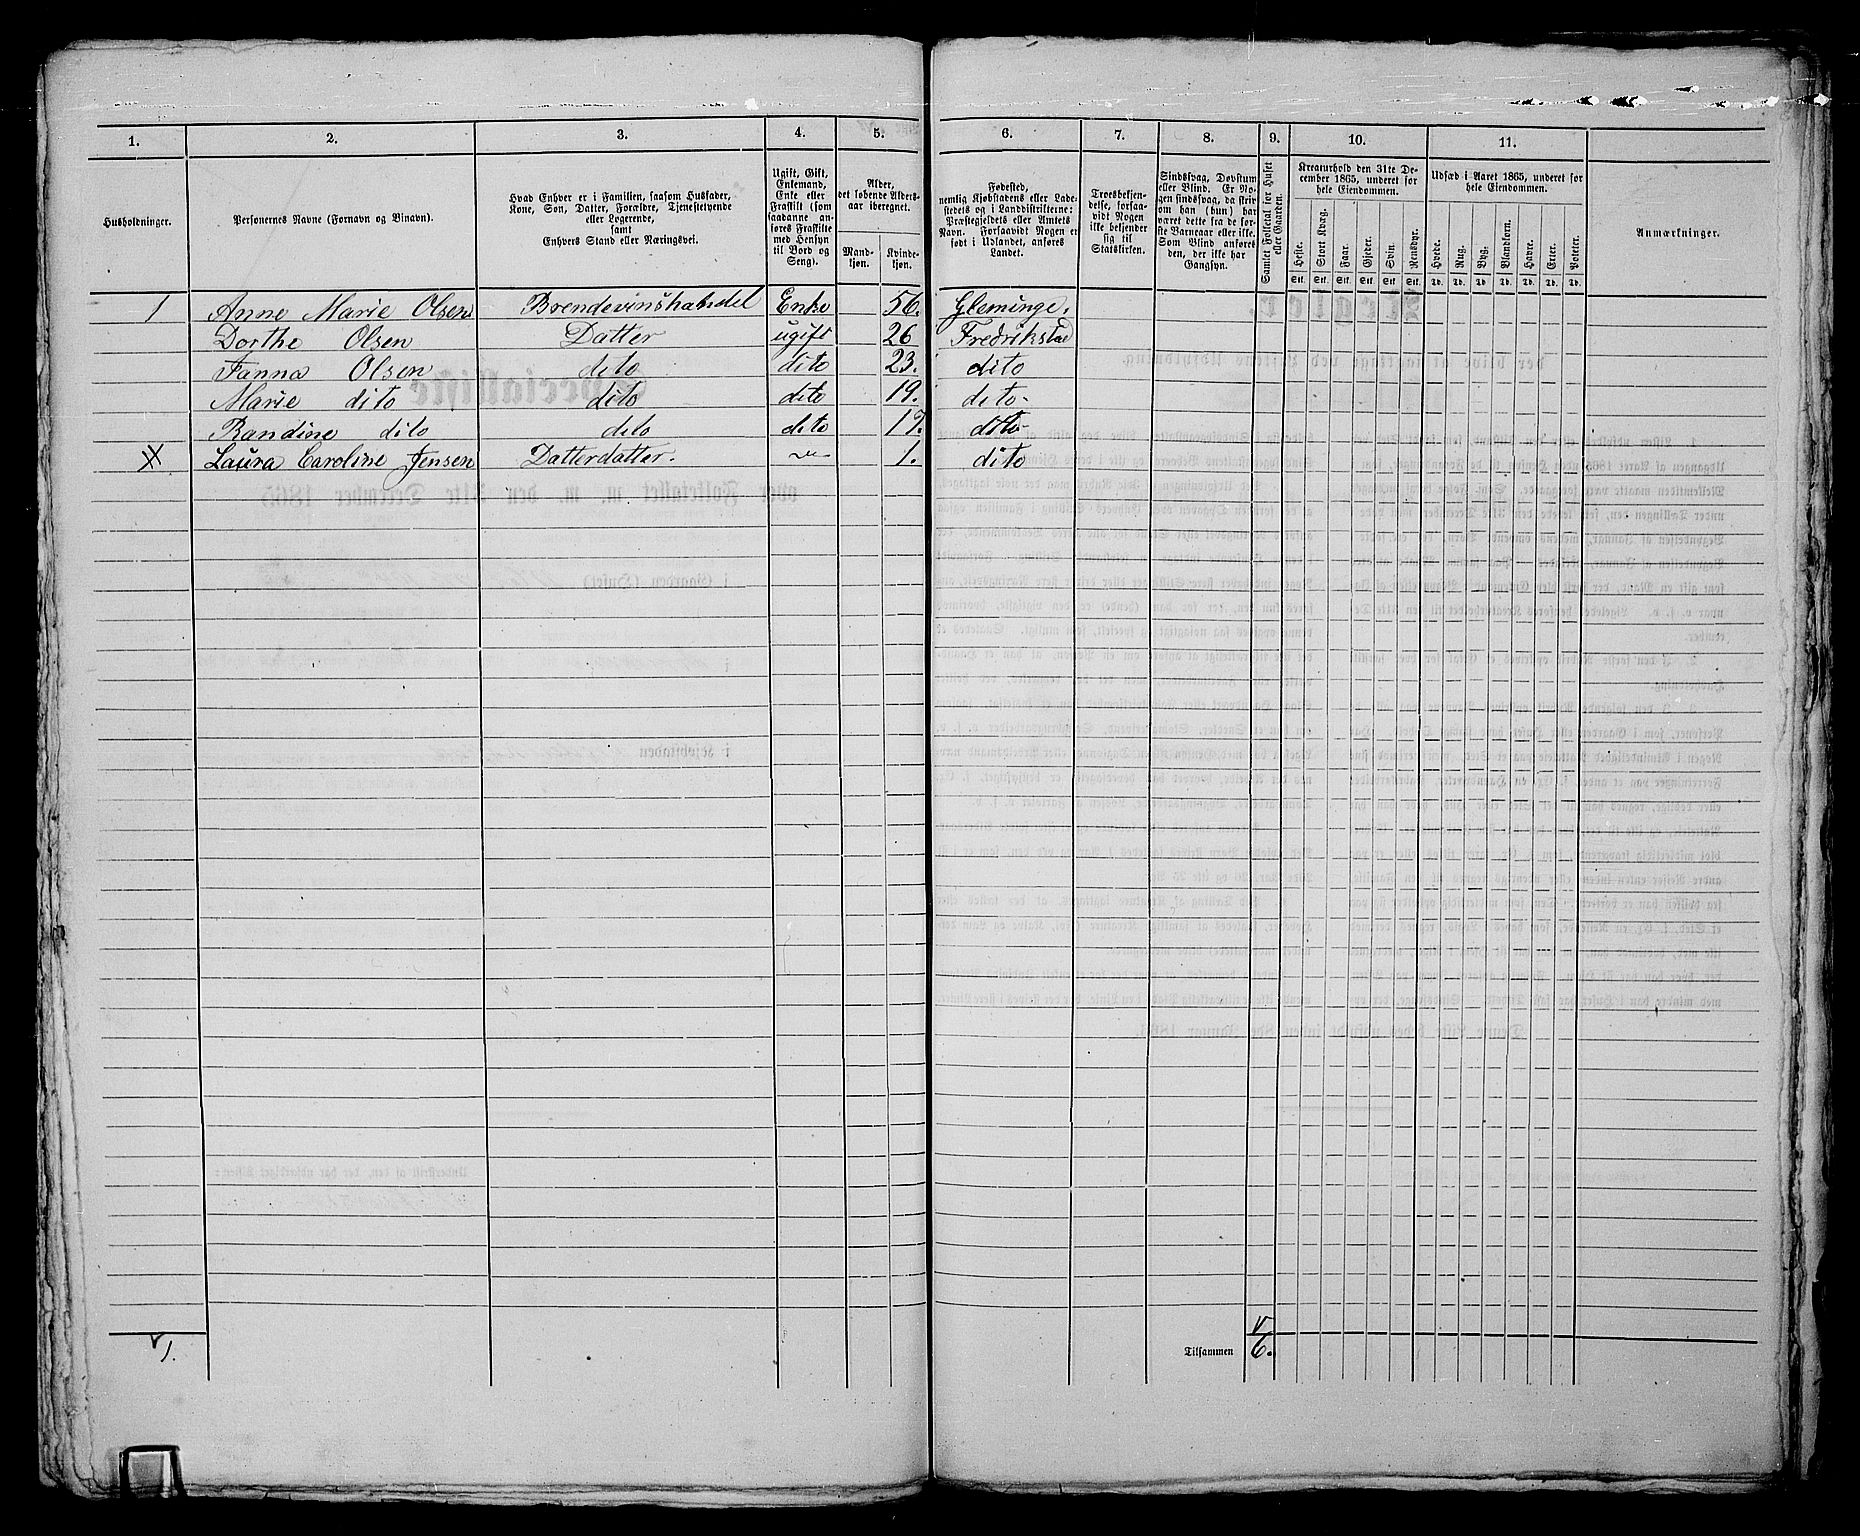 1. 2. 3. 4. 5. 6. 7. 8. 9. 10. 11.
Husholdninger.
Personernes Navne (Fornavn og Binavn).
Hvad Enhver er i Familien, saasom Husfader,
Kone, Søn, Datter, Forældre, Tjenestetyende
eller Logerende,
samt
Enhvers Stand eller Næringsvei.
Ugift, Gift,
Enkemand,
Enke eller
Fraskilt (som
saadanne an-
føres Fraskilte
med Hensyn
til Bord og
Seng).
Alder,
det løbende Alders-
aar iberegnet.
Mand-
kjøn.
Kvinde-
kjøn.
Fødested,
nemlig Kjøbstadens eller Lade-
stedets og i Landdistrikterne:
Præstegjeldets eller Amtets
Navn. Forsaavidt Nogen er
født i Udlandet, anføres
Landet.
Troesbekjen-
delse, forsaa-
vidt Nogen
ikke bekjender
sig til
Statskirken.
Sindssvag, Døvstum
eller Blind. Er No-
gen sindssvag, da skriv
om han (hun) har
været dette fra de før-
ste Barneaar eller ikke.
Som Blind anføres
den, der ikke har
Gangsyn.
Samlet Folketal for Huset
eller Gaarden.
Kreaturhold den 31te De-
cember 1865, underet for
hele Eiendommen.
Heste. Stort Kvæg. Faar. Gjeder. Svin. Rensdyr.
Stk. Stk. Stk. Stk. Stk. Stk.
Udsæd i Aaret 1865, underet for
hele Eiendommen.
Hvede. Rug. Byg. Blandkorn. Havre. Erter. Poteter.
Td. Td. Td. Td. Td. Td. Td.
Anmærkninger.
1 Anne Marie Olsen Brendevinshandel Enke 56. Gleminge.
Dorthe Olsen Datter ugift 26 Fredrikstad
Fanna Olsen dito dito 23. dito
Marie dito dito dito 19. dito
Randine dito dito dito 17. dito
Laura Caroline Jensen Datterdatter. 1. dito
1.
Tilsammen 6.